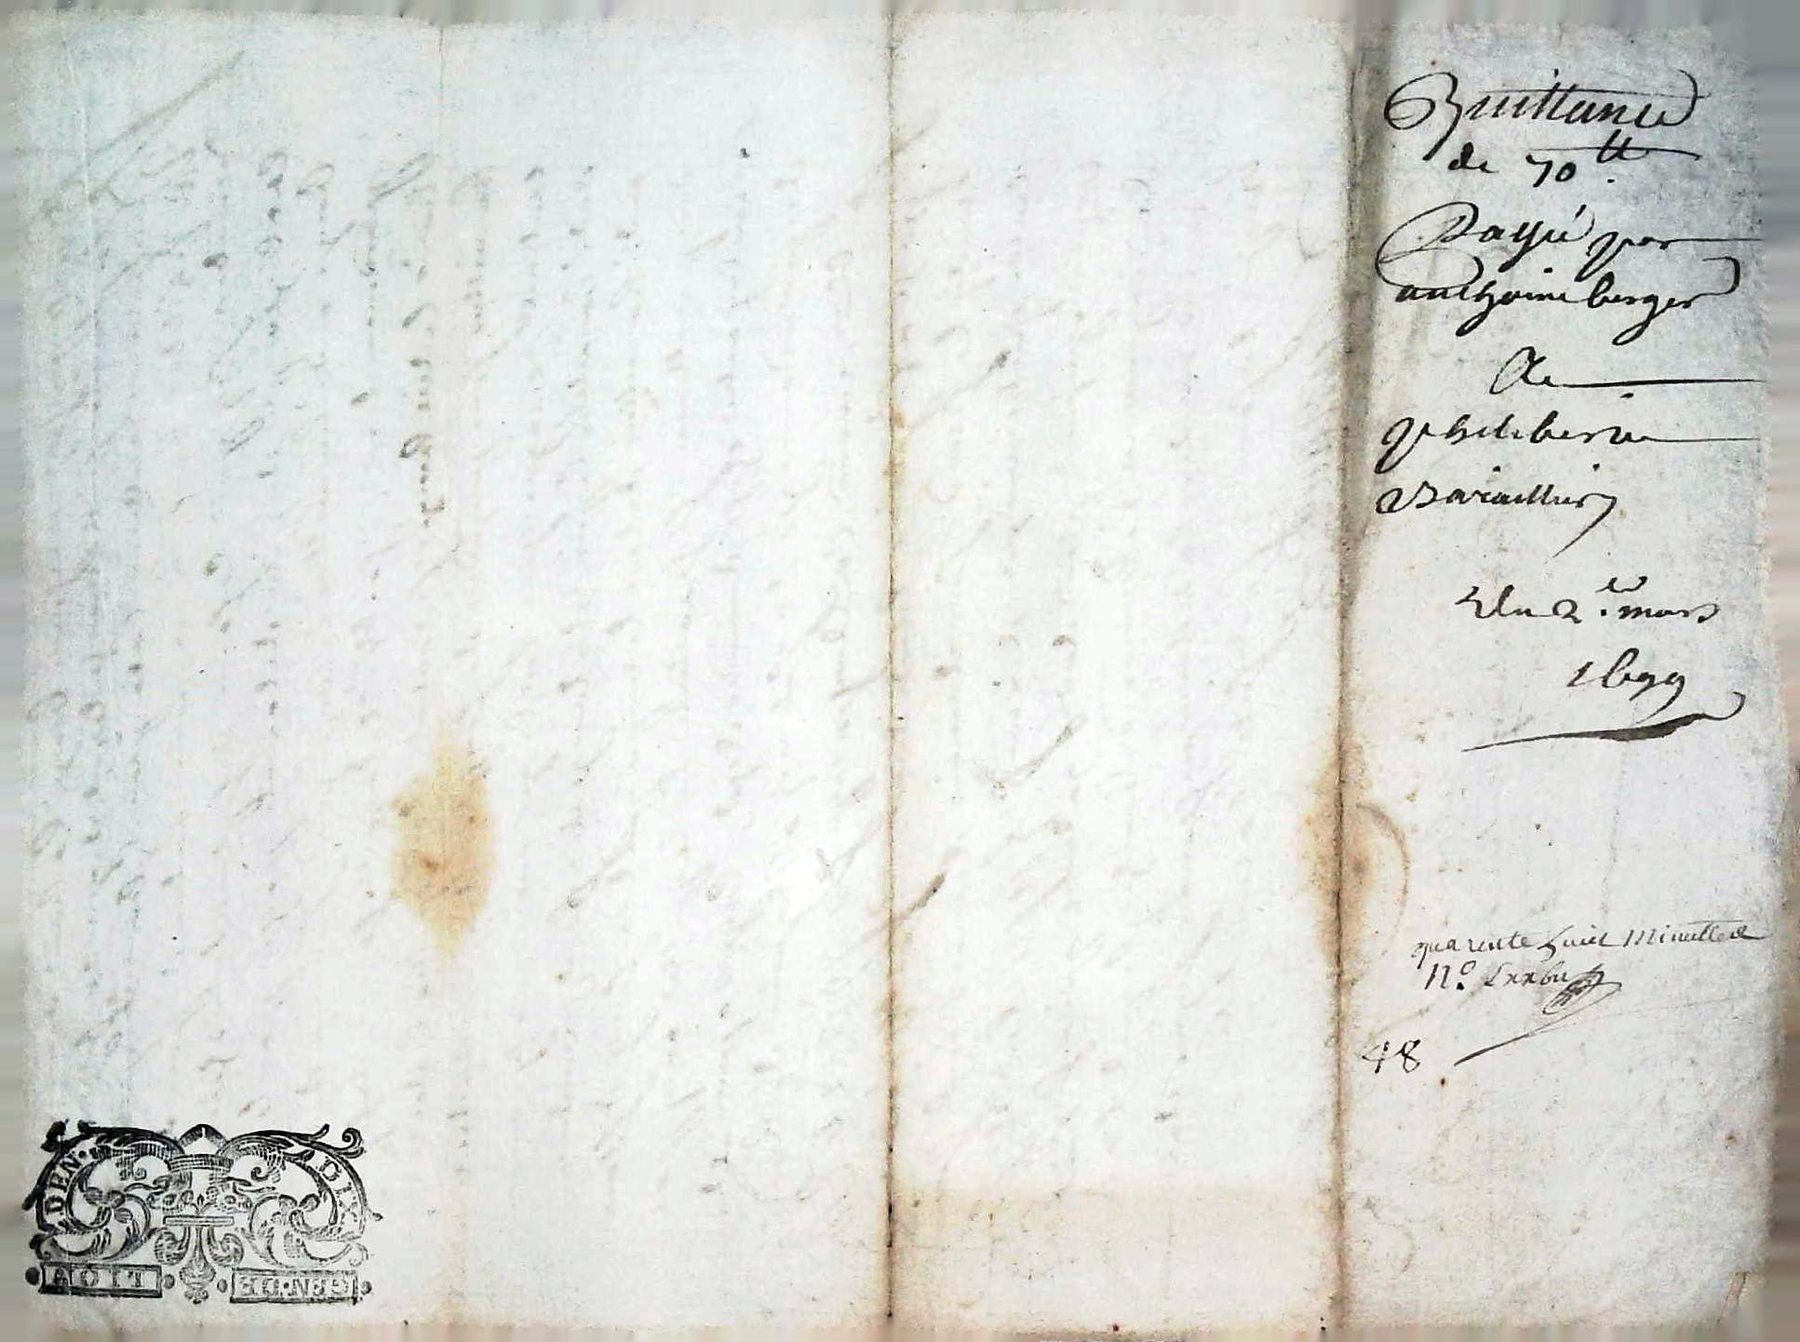 Quittance
de 70tt
Payé par
anthoine berger
A
philiberte
Baraillier
du 2e. mars
1699
quarente huict Minutte
No.
48
DEN. DIX
GEN. DE